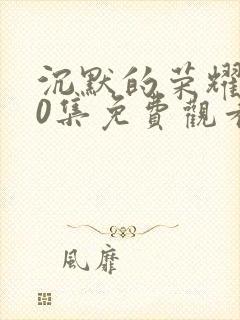 沉默的荣耀
0集免費觀看
風靡